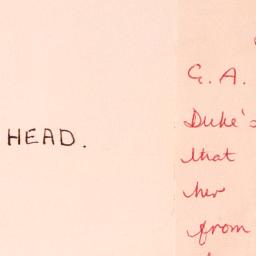 HEAD.
G. A.
Duke's
that
her
from